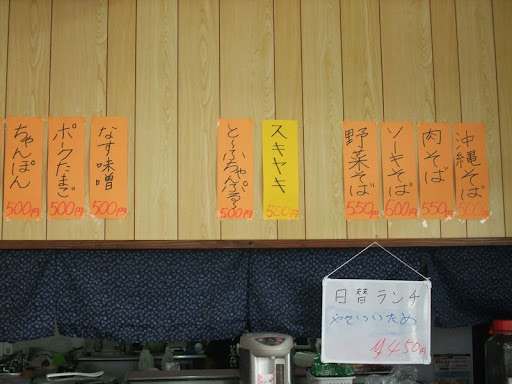 沖縄そば
500円
肉そば
550円
ソーキそば
600円
野菜そば
550円
スキヤキ
500円
と〜ふちゃんぷる〜
500円
なす味噌
500円
ポークたまご
500円
ちゃんぽん
500円
日替ランチ
やさいいため
¥450円